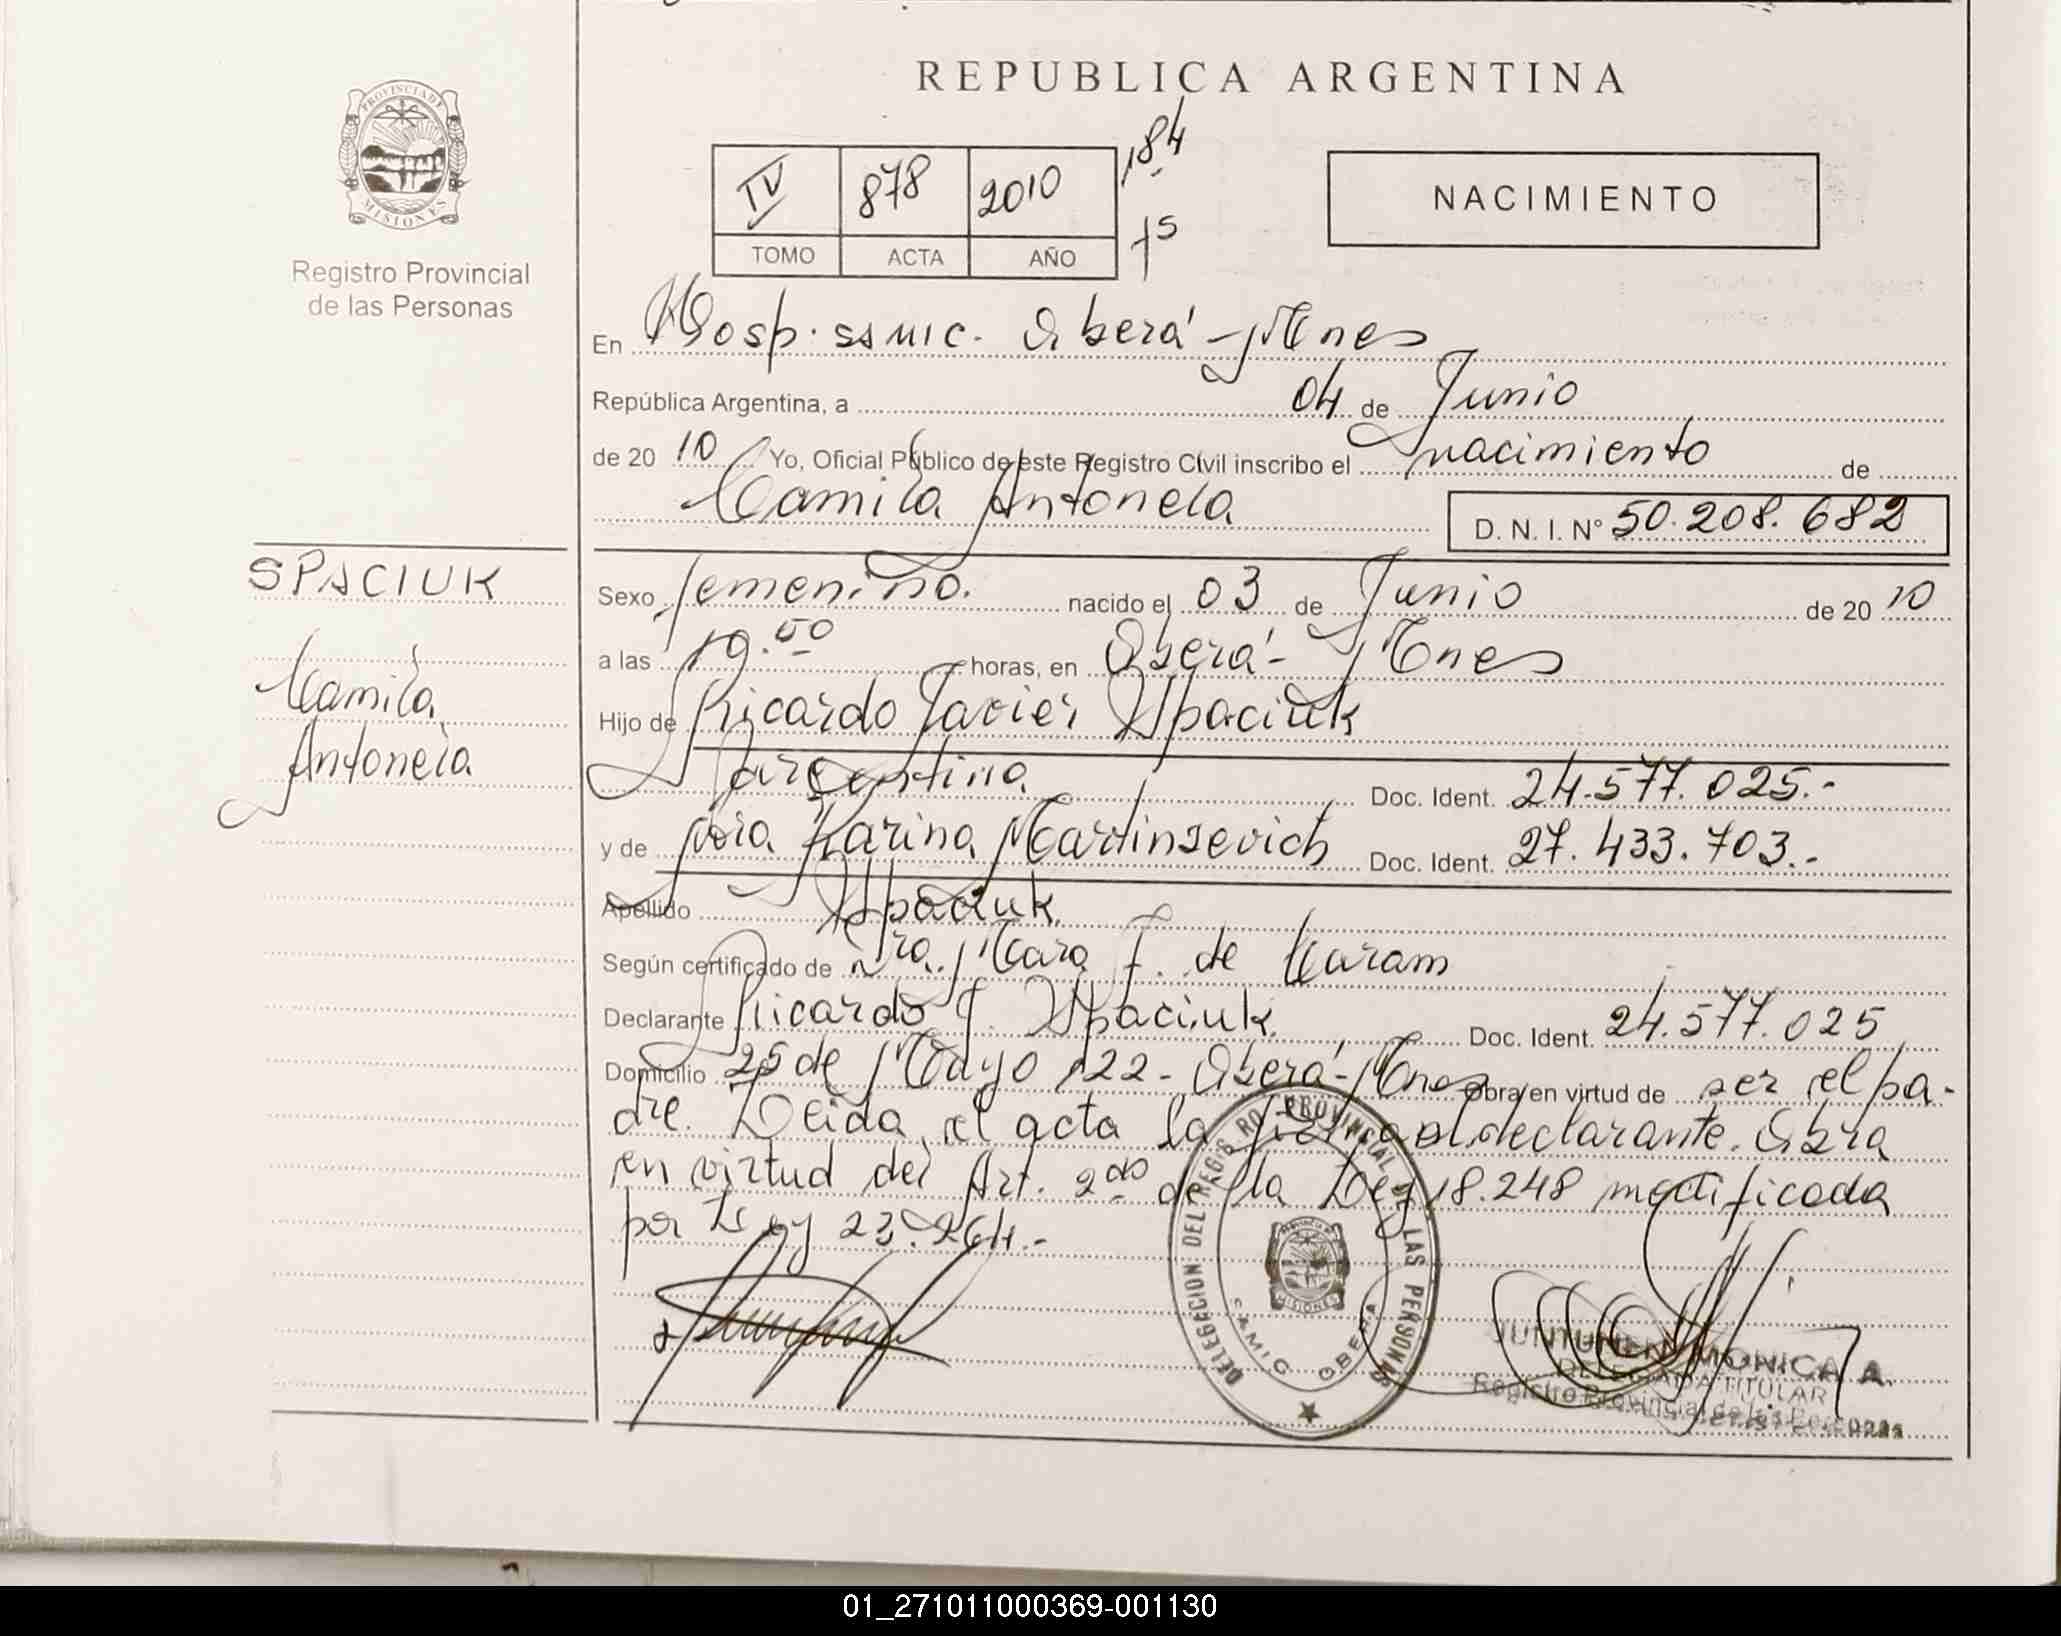 REPUBLICA ARGENTINA
PROVINCIA DE
MISIONES
Registro Provincial
de las Personas
IV 878 2010
TOMO ACTA AÑO
184
75
NACIMIENTO
En Hosp. SAMIC. Oberá - Mnes
República Argentina, a 04 de Junio
de 20 10 Yo, Oficial Público de este Registro Civil inscribo el nacimiento de
Camila Antonela D. N. I. Nº 50.208.682
SPACIUK
Camila
Antonela
Sexo femenino. nacido el 03 de Junio de 20 10
a las 19.50 horas, en Oberá - Mnes
Hijo de Ricardo Javier Spaciuk
argentina Doc. Ident. 24.577.025.-
y de Karina Martinsevich Doc. Ident. 27.433.703.-
Apellido Spaciuk
Según certificado de Dra. Mara F. de Karam
Declarante Ricardo J. Spaciuk. Doc. Ident. 24.577.025
Domicilio 25 de Mayo 122 - Oberá - Mnes obra en virtud de ser el pa-
dre. Leida el acta la firma el declarante. Obra
en virtud del Art. 2do de la Ley 18.248 modificada
por Ley 23.264.-
DELEGACION DEL REGISTRO PROVINCIAL DE LAS PERSONAS
SAMIC OBERA
MISIONES
JUNTUNEN MONICA A.
DELEGADA TITULAR
Registro Provincial de las Personas
01_271011000369-001130